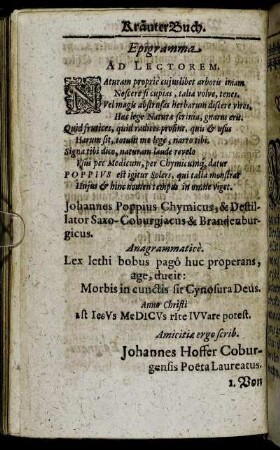 Kräuter Buch.
Epigramma
AD LECTOREM.
NAturam propriè cujuslibet arboris imam
Noscere si cupias, talia volve, tenes.
Vel magis abstrusas herbarum discere vires,
Hæc lege Naturæ scrinia, gnarus eris.
Quid frutices, quid radices prosint, quis & usus
Harum sit, totum me lege, narro tibi.
Signa tibi dico, naturam laudo revelo
per Medicum, per Chymicumq; datur
POPPIUS est igitur Solers, qui talia monstrat
Hujus & hinc nomen tempus in omne viget.
Johannes Poppius Chymicus, & Destil-
lator Saxo-Coburgiacus & Brandenbur-
gicus.
Anagrammaticè.
Lex lethi bobus pagô huc properans,
age, ducit:
Morbis in cunctis sit Cynosura Deus.
Anno Christi
est IesVs MeDICVs rIte IVVare potest.
Amicitiæ ergò scrib.
Johannes Hoffer Cobur-
gensis Poëta Laureatus.
1. Von